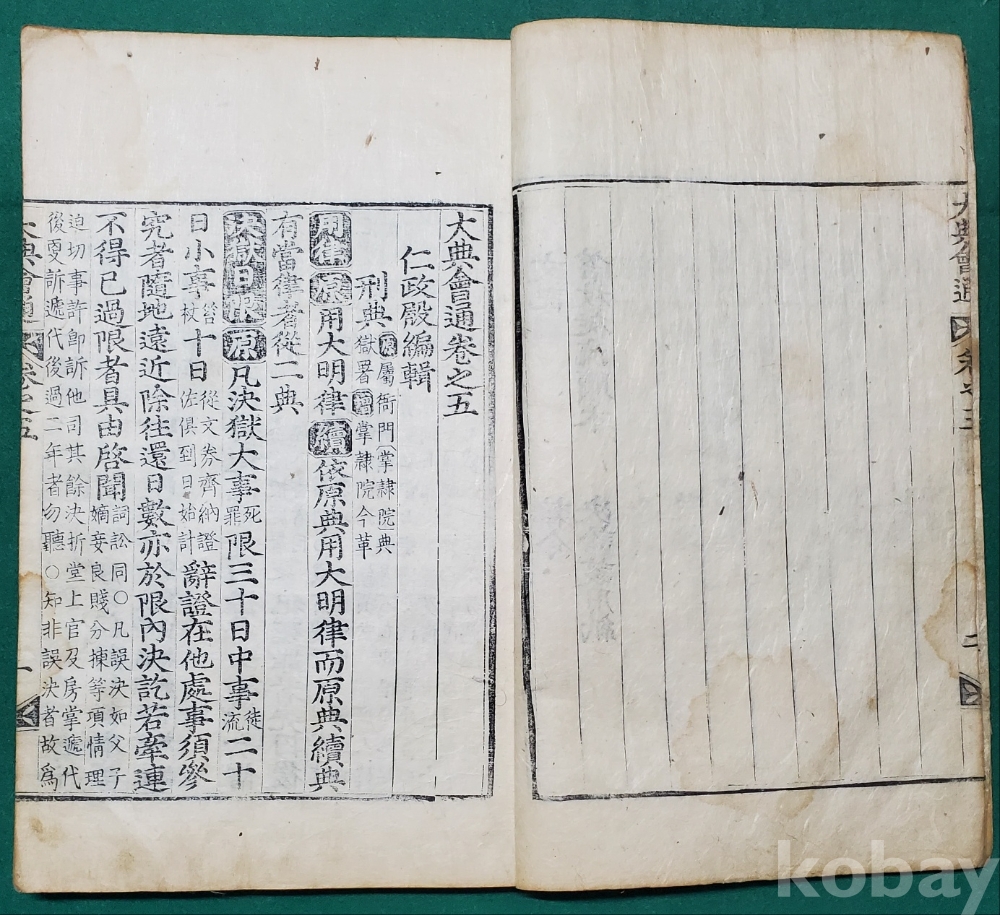 大典會通 卷之五
大典會通卷之五
仁政殿編輯
刑典 原屬衙門掌隷院典獄署 增掌隷院今革
用律 原 用大明律 續 依原典用大明律而原典續典
有當律者從二典
決獄日限 原 凡決獄大事死罪限三十日中事徒流二十
日小事笞杖十日從文券齊納證佐俱到日始計辭證在他處事須參
究者隨地遠近除往還日數亦於限內決訖若牽連
不得已過限者具由啓聞詞訟同○凡誤決如父子嫡妾良賤分揀等項情理
迫切事許卽訴他司其餘決折堂上官及房掌遞代後更訴遞代後過二年者勿聽○知非誤決者故爲
大典會通 卷之五 一
kobay